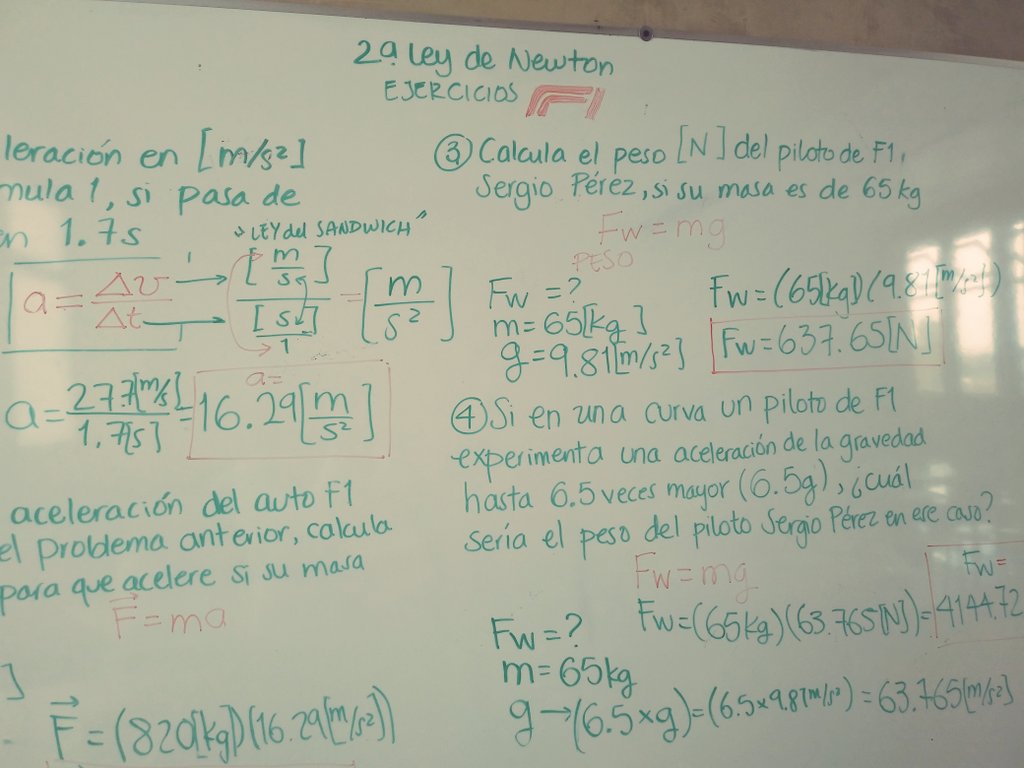 2ª Ley de Newton
EJERCICIOS F1
leración en [m/s²]
mula 1, si pasa de
en 1.7s
"LEY del SANDWICH"
a = Δv/Δt → [m/s]/[s]/1 = [m/s²]
a = 27.7[m/s]/1.7[s] = a= 16.29[m/s²]
aceleración del auto F1
el problema anterior, calcula
para que acelere si su masa
F⃗ = ma
]
F⃗ = (820[kg])(16.29[m/s²])
③ Calcula el peso [N] del piloto de F1,
Sergio Pérez, si su masa es de 65 kg
Fw = mg
PESO
Fw = ?
m = 65[kg]
g = 9.81[m/s²]
Fw = (65[kg])(9.81[m/s²])
Fw = 637.65[N]
④ Si en una curva un piloto de F1
experimenta una aceleración de la gravedad
hasta 6.5 veces mayor (6.5g), ¿cuál
sería el peso del piloto Sergio Pérez en ese caso?
Fw = mg
Fw =
Fw = (65kg)(63.765[N]) = 4144.72
Fw = ?
m = 65kg
g → (6.5 × g) = (6.5 × 9.81[m/s²]) = 63.765[m/s²]